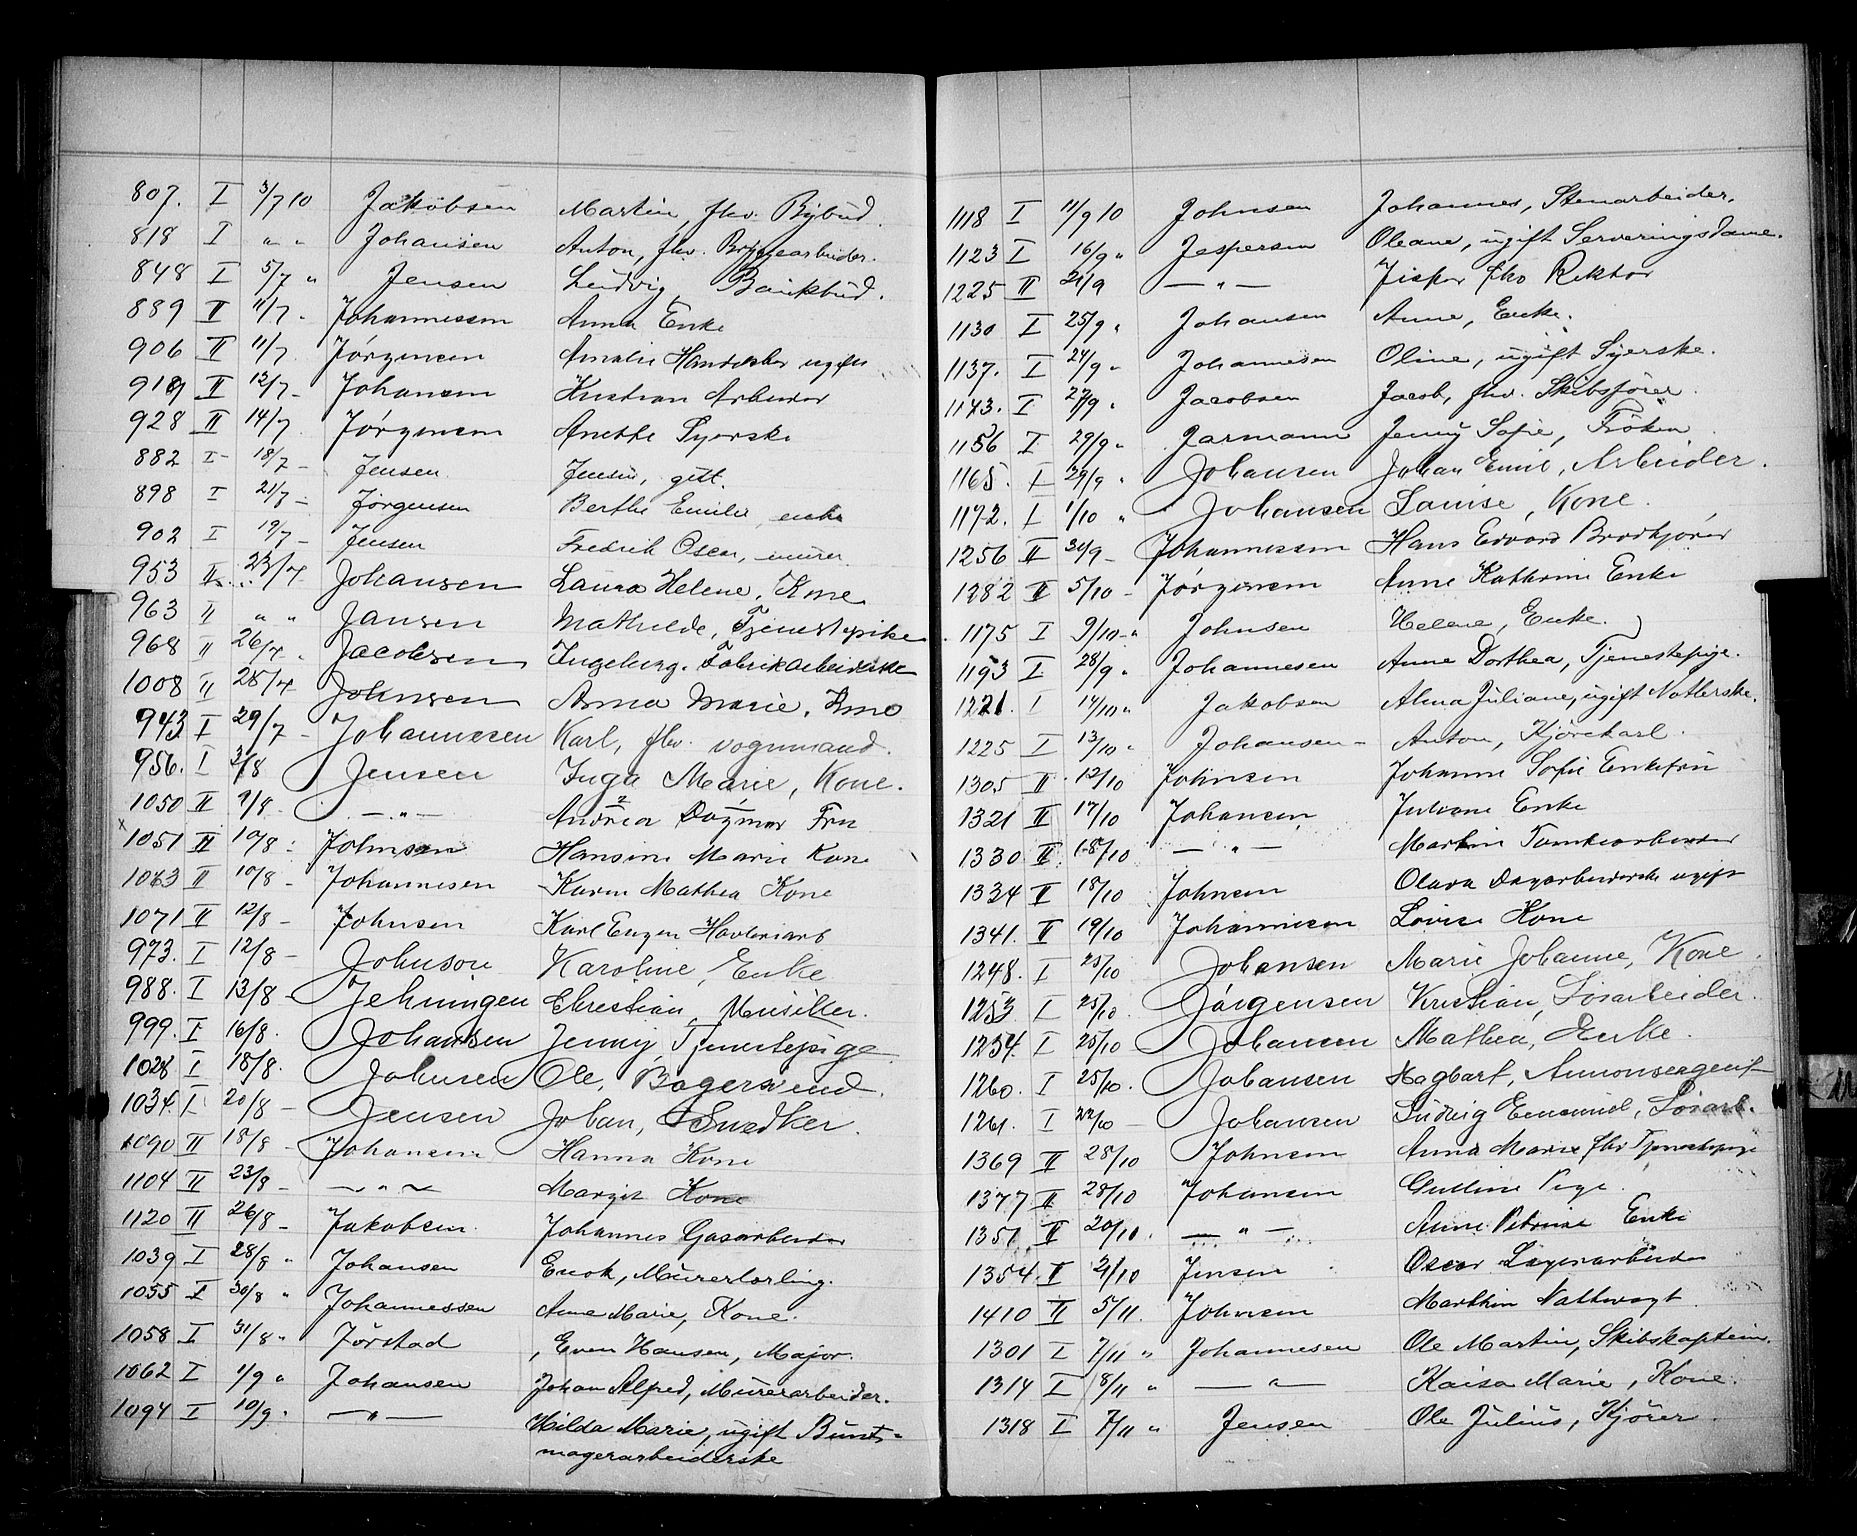 807. I 3/7 10 Jakobsen Martin, fhv. Bybud.
818 I " " Johansen Anton, fhv. Bryggearbeider.
848 I 5/7 " Jensen Ludvig, Bankbud.
889 II 11/7 " Johannessen Anna Enke
906 II 11/7 Jørgensen Amalie ugift
919 II 12/7 - Johansen Kristian Arbeider
928 II 14/7 Jørgensen Anette Syerske
882 I 18/7 - Jensen gift.
898 I 21/7 - Jørgensen Berthe Emilie, enke
902 I 19/7 - Jensen Fredrik Oscar, murer
953 II 23/7 Johansen Laura Helene, Kone
963 II " " Jansen Mathilde, Tjenestepike
968 II 26/7 Jacobsen Ingeborg. Fabrikarbeiderske
1008 II 28/7 Johnsen Anna Marie,
943 I 29/7 - Johannesen Karl, fhv. vognmand.
956. I 2/8 Jensen Inga Marie, Kone.
1050 II 9/8 - — " — Andrea Dagmar Fru
x 1051 II 10/8 : Johnsen Hansine Marie Kone
1063 II 10/8 - Johannesen Karen Mathea Kone
1071 II 12/8 - Johnsen Karl Eugen Havnearb
973. I 12/8 - Johnson Karoline, Enke
988. I 13/8 - Jehningen Christian, Musiker.
999. I 16/8. Johansen Jenny, Tjenestepige
1028 I 18/8. Johnsen Ole, Bagersvend.
1034. I 20/8 - Jensen Johan, Snedker.
1090 II 18/8 - Johansen Hanna Kone
1104 II 23/8 - — " — Margit Kone
1120 II 26/8 - Jakobsen Johannes Gasarbeider
1039 I 28/8 " Johansen Enok, Murerlærling.
1055 I 30/8 " Johannessen Anne Marie, Kone.
1058 I 31/8 " Jørstad , Even Hansen, Major.
1062 I 1/9 " Johansen Johan Alfred, Murerarbeider.
1094 I 10/9. — " — Hilda Marie, ugift Bunt-
magerarbeiderske
1118 I 11/9 10 Johnsen Johannes, Stenarbeider.
1123 I 16/9 " Jespersen Oleane, ugift Serveringsdame.
1225 II 21/9 — " — Jesper fhv Rektor
1130 I 25/9 " Johansen Anne, Enke.
1137. I 24/9 " Johannesen Oline, ugift Syerske.
1143. I 27/9 " Jacobsen Jacob, fhv. Skibsfører.
1156 I 29/9 " Jarmann Jenny Sofie, Frøken.
1165. I 29/9 " Johansen Johan Emil, Arbeider.
1172. I 1/10 " Johansen Louise, Kone.
1256 II 30/9 - Johannessen Hans Edvard Brødkjører
1282 II 5/10 - Jørgensen Anne Kathrine Enke
1175 I 9/10 - " Johnsen Helene, Enke.
1193 I 28/9 " Johannesen Anne Dorthea, Tjenestepige.
1221. I 14/10 " Jakobsen Alma Juliane, ugift
1225 I 13/10 " Johansen - Anton, Kjørekarl.
1305 II 12/10 Johnsen Johanne Sofie Enkefru
1321 II 17/10 Johansen Juliane Enke
1330 II 18/10 — " — Martin Tomtearbeider
1334 II 18/10 Johnsen Olava Dagarbeiderske ugift
1341. II 19/10 Johannesen Lovise Kone
1248. I 25/10 Johansen Marie Johanne, Kone.
1253 I 25/10. Jørgensen Kristian, Løsarbeider.
1254. I 25/10 Johansen Mathea, Enke.
1260. I 25/10. Johansen Hagbart, Annonseagent
1261. I 22/10 - Johansen Ludvig Emanuel, Løsarb.
1369 II 28/10 Johnsen Anna Marie fhv Tjenestepige
1377 II 28/10 Johansen Gulline Pige.
1351 II 20/10. — " — Anne Petrine Enke
1354 II 21/10 Jensen Oscar Lagerarbeider
1410 II 5/11. Johnsen Marthin Nattvagt
1301 I 7/11 " Johannesen Ole Martin, Skibskaptein.
1314 I 8/11 " — " — Kaisa Marie, Kone.
1318 I 7/11 " Jensen Ole Julius, Kjører.